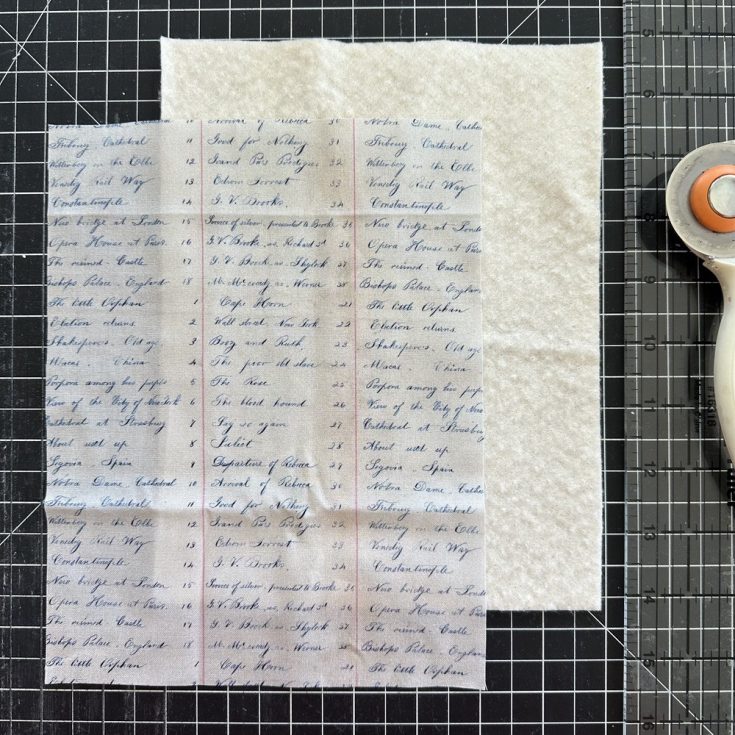 Notra Dame. Cathe 10 Arrival of Rebecca 30 Notra Dame. Cathe
Fribourg Cathedral 11 Good for Nothing 31 Fribourg Cathedral
Wittenberg on the Elbe 12 Grand Pas 32 Wittenberg on the Elbe
Rail Way 13 Edwin Forrest 33 Rail Way
Constantinople 14 G. V. Brooke. 34 Constantinople
New bridge at London 15 of silver, presented to Brooke 36 New bridge at Lond
Opera House at Paris. 16 G.V. Brooke as. Richard 3d 36 Opera House at Paris
The ruined Castle 17 G. V. Brook. as. Shylock 37 The ruined Castle.
Bishops Palace. England 18 as. Werner 38 Bishops Palace. Englan
The little Orphan 1 Cape Horn 21 The little Orphan
Election returns 2 Wall street, New York 22 Election returns.
Shakespere's. Old age 3 Boaz and Ruth 23 Shakespere's. Old age
Macao. China 4 The poor old slave 24 Macao. China
Porpora among his pupils 5 The Rose 25 Porpora among his pup
View of the City of New York 6 The blood hound 26 View of the City of New
Cathedral at Strasburg 7 Say so again 27 Cathedral at Strasburg
About used up 8 Juliet 28 About used up
Segovia. Spain 9 Departure of Rebecca 29 Segovia. Spain
Notra Dame. Cathedral 10 Arrival of Rebecca 30 Notra Dame. Cathe
Fribourg Cathedral 11 Good for Nothing 31 Fribourg Cathedral
Wittenberg on the Elbe 12 Grand Pas 32 Wittenberg on the Elbe
Rail Way 13 Edwin Forrest 33 Rail Way
Constantinople 14 G. V. Brooke. 34 Constantinople
New bridge at London 15 of silver, presented to Brooke 36 New bridge at Lond
Opera House at Paris. 16 G.V. Brooke as. Richard 3d 36 Opera House at Paris
The ruined Castle 17 G. V. Brook. as. Shylock 37 The ruined Castle.
Bishops Palace. England 18 as. Werner 38 Bishops Palace. Englan
The little Orphan 1 Cape Horn 21 The little Orphan
5
6
7
8
9
10
11
12
13
14
15
16